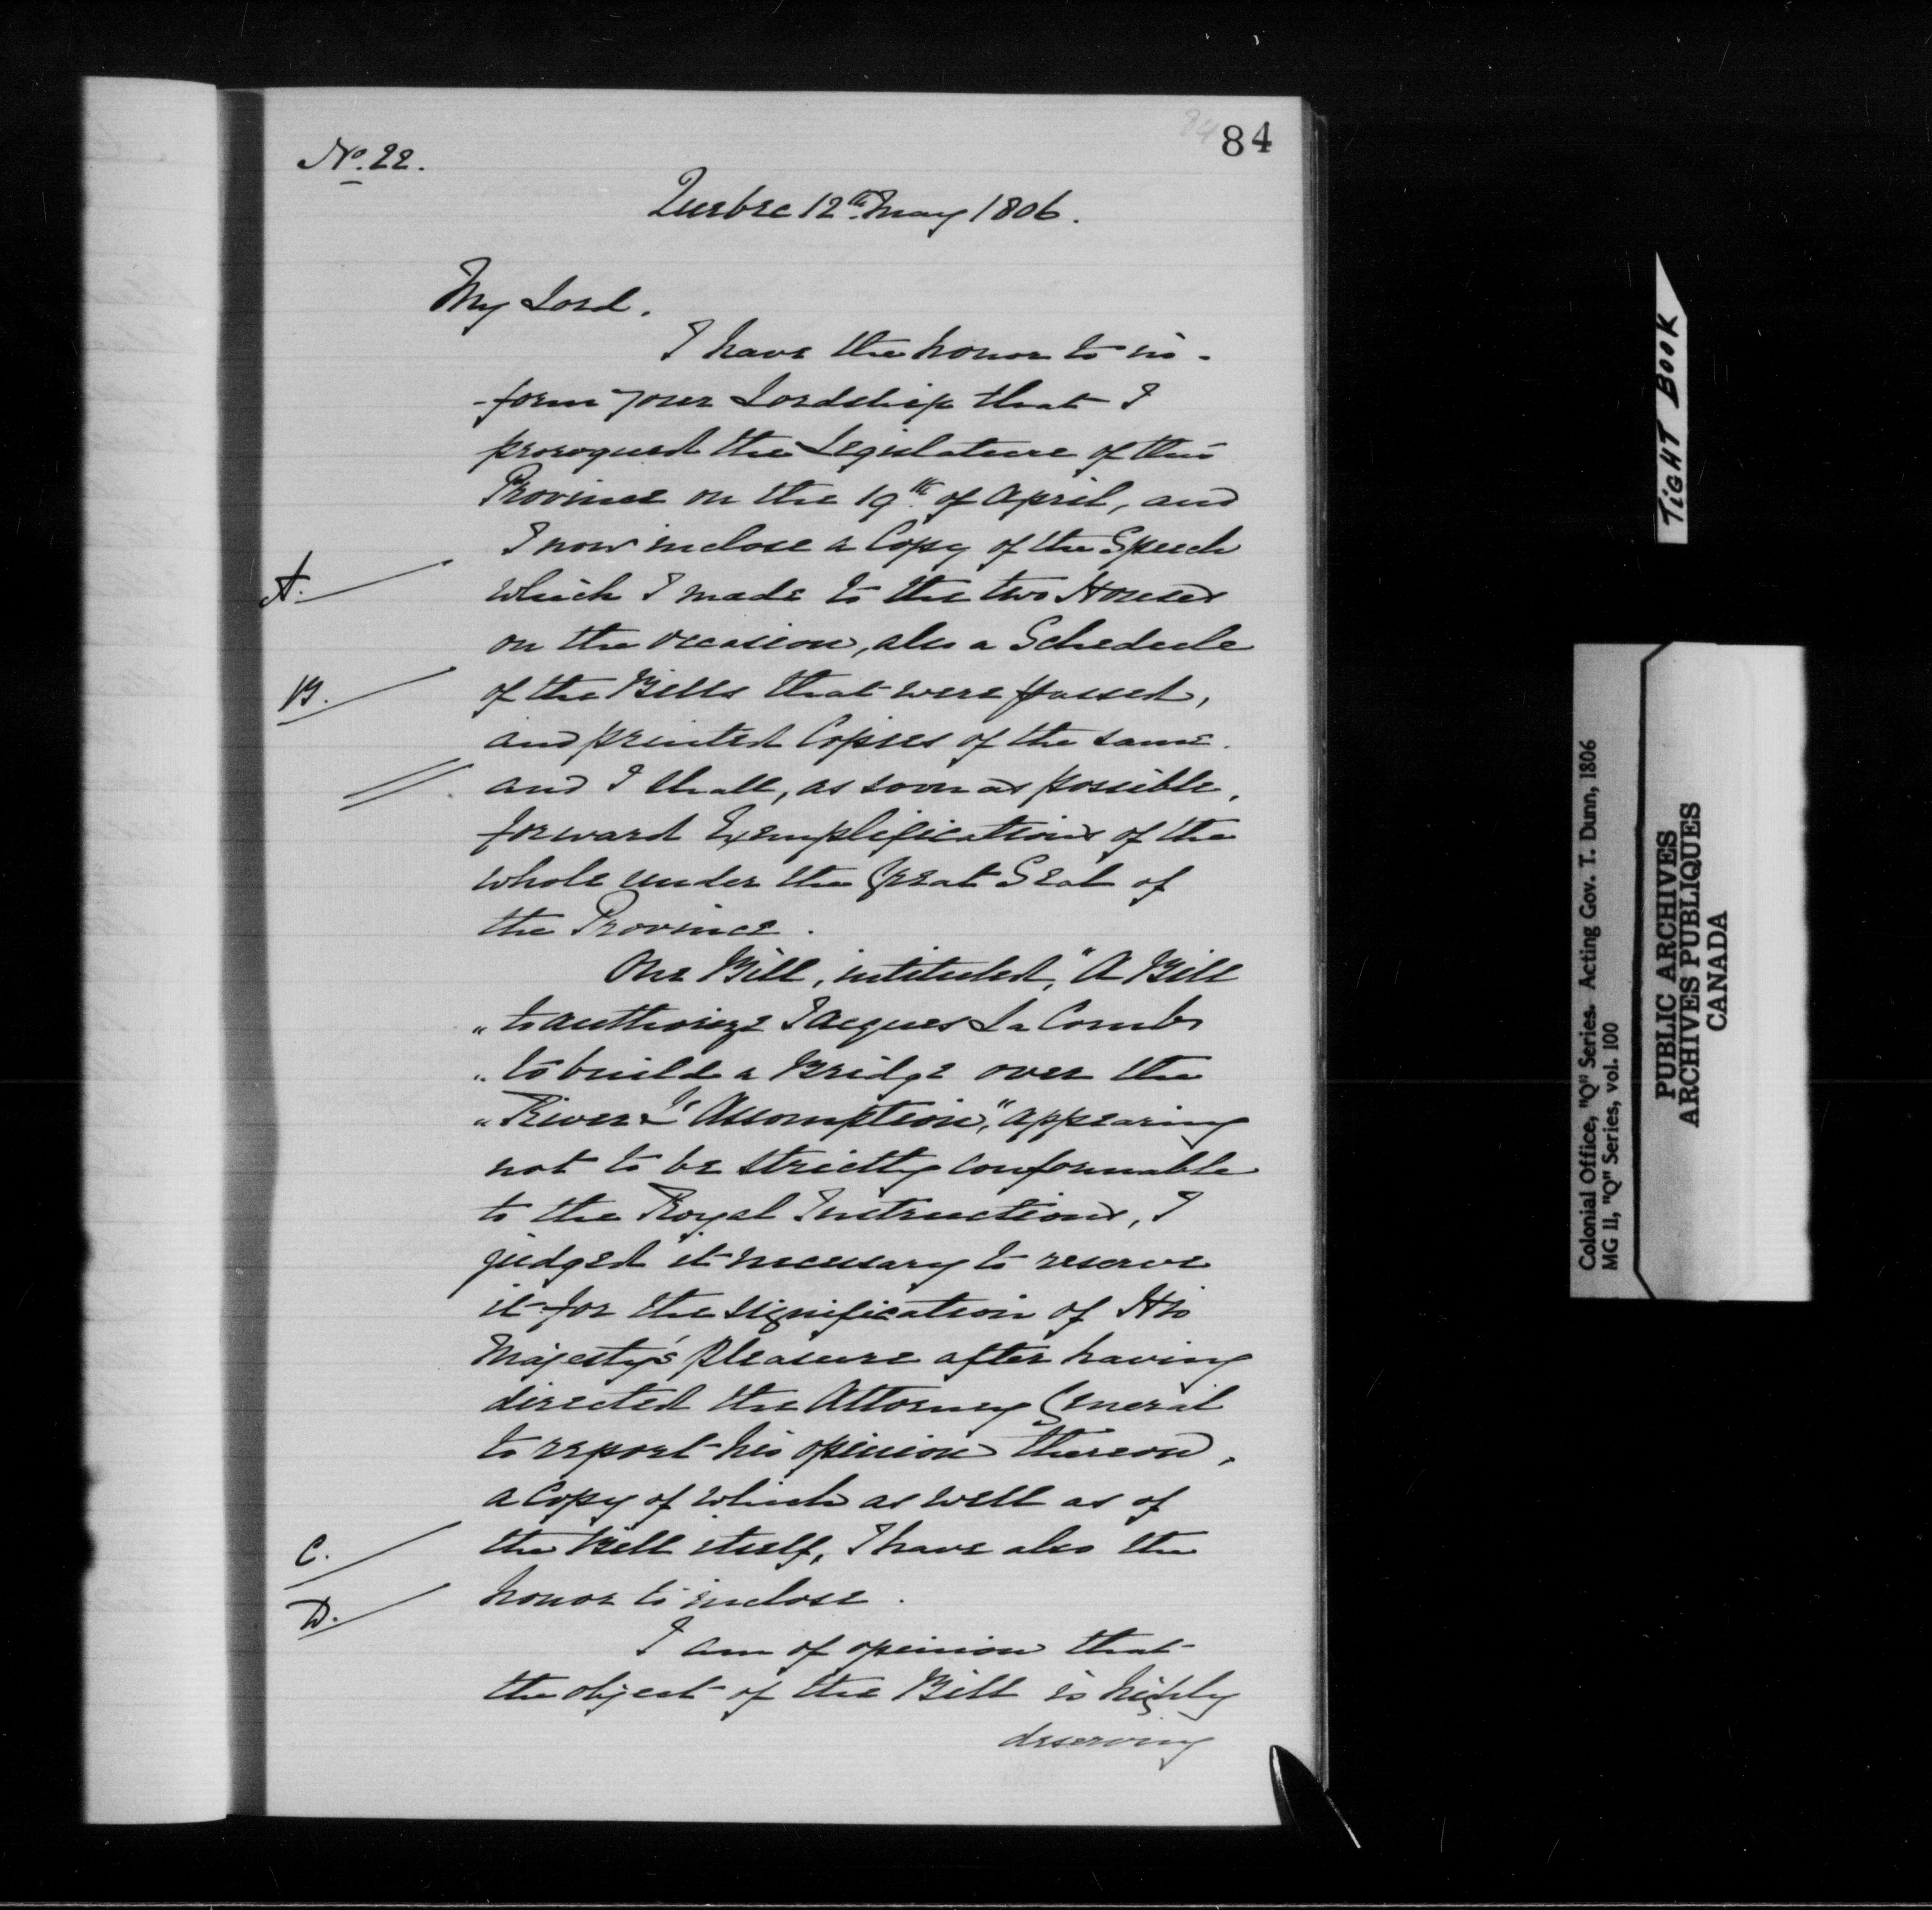 84
84
No. 22.
Quebec 12th May 1806.
My Lord.
I have the honor to in-
-form your Lordship that I
prorogued the Legislature of this
Province on the 19th of April, and
I now inclose a Copy of the Speech
A.
which I made to the two Houses
on the occasion, also a Schedule
B.
of the Bills that were passed,
and printed Copies of the same.
and I shall, as soon as possible,
forward Exemplifications of the
whole under the Great Seal of
the Province.
One Bill, intituled, "A Bill
"to authorize Jacques La Combe
"to build a Bridge over the
"River L'Assomption," appearing
not to be strictly conformable
to the Royal Instructions, I
judged it necessary to reserve
it for the signification of His
Majesty's pleasure after having
directed the Attorney General
to report his opinion thereon,
a Copy of which as well as of
C.
the Bill itself, I have also the
D.
honor to inclose.
I am of opinion that
the object of the Bill is highly
deserving
TIGHT BOOK
Colonial Office, "Q" Series. Acting Gov. T. Dunn, 1806
MG 11, "Q" Series, vol. 100
PUBLIC ARCHIVES
ARCHIVES PUBLIQUES
CANADA